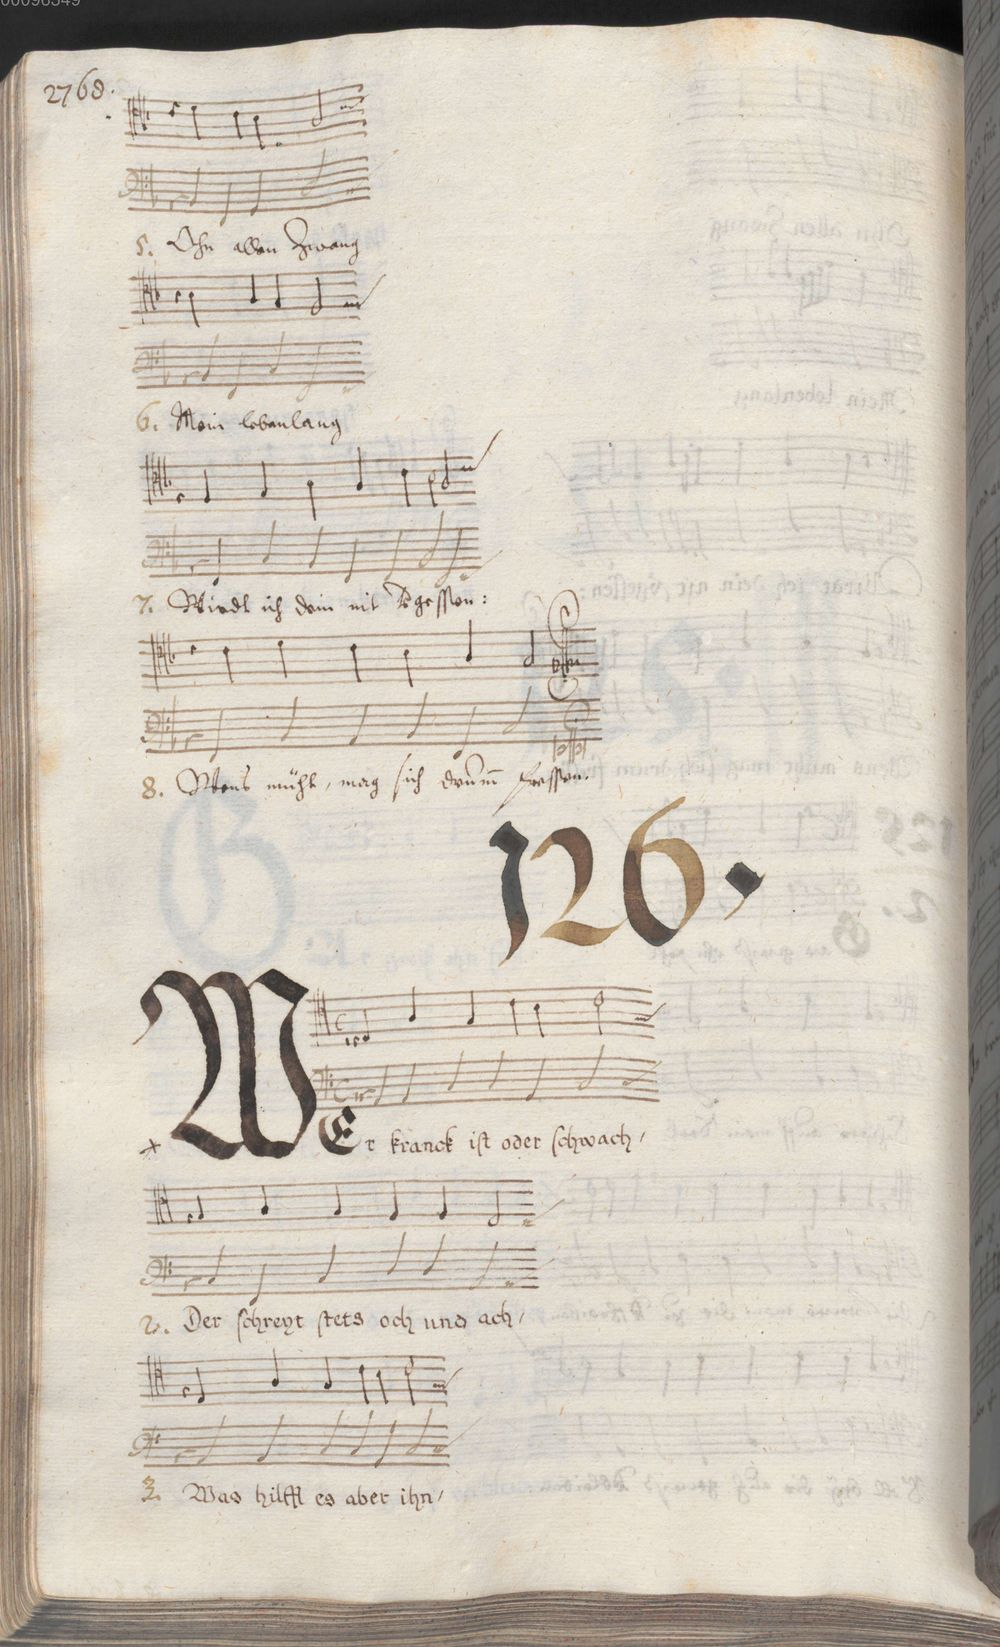 2768.
5. Ohn allen Zwang
6. Mein lebenlang
7. Wirdt ich dein nit v̈gessen:
8. Wens müht, mag sich drum̄ fressen.
126.
WEr kranck ist oder schwach,
2. Der schreyt stets och und ach,
3. Was hilfft es aber ihn,